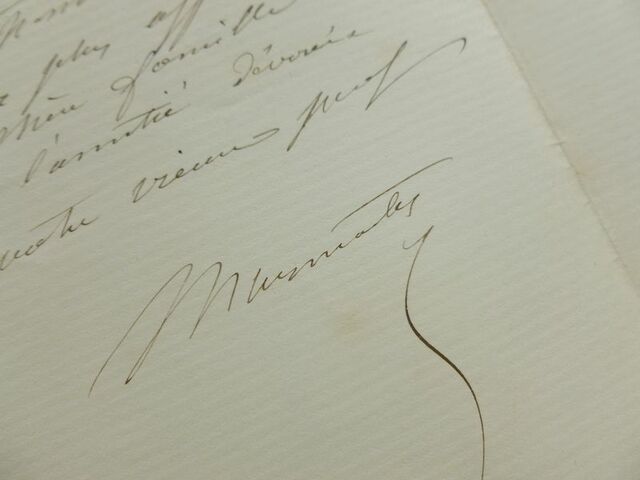 plus aff
chère famille
l'amitié dévouée
votre vieux prof
Marmontel